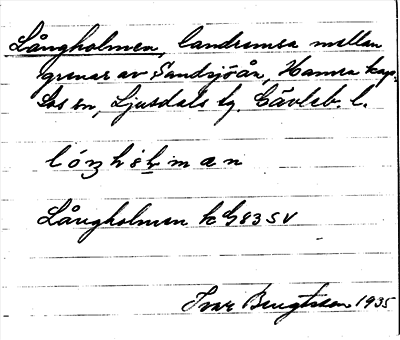 Långholmen, landremsa mellan
grenar av Sandsjöån, Hamra kap-
Los sn, Ljusdals tg. Gävleb. l.
Långholmen k G83 SV
Ivar Bengtsson 1935